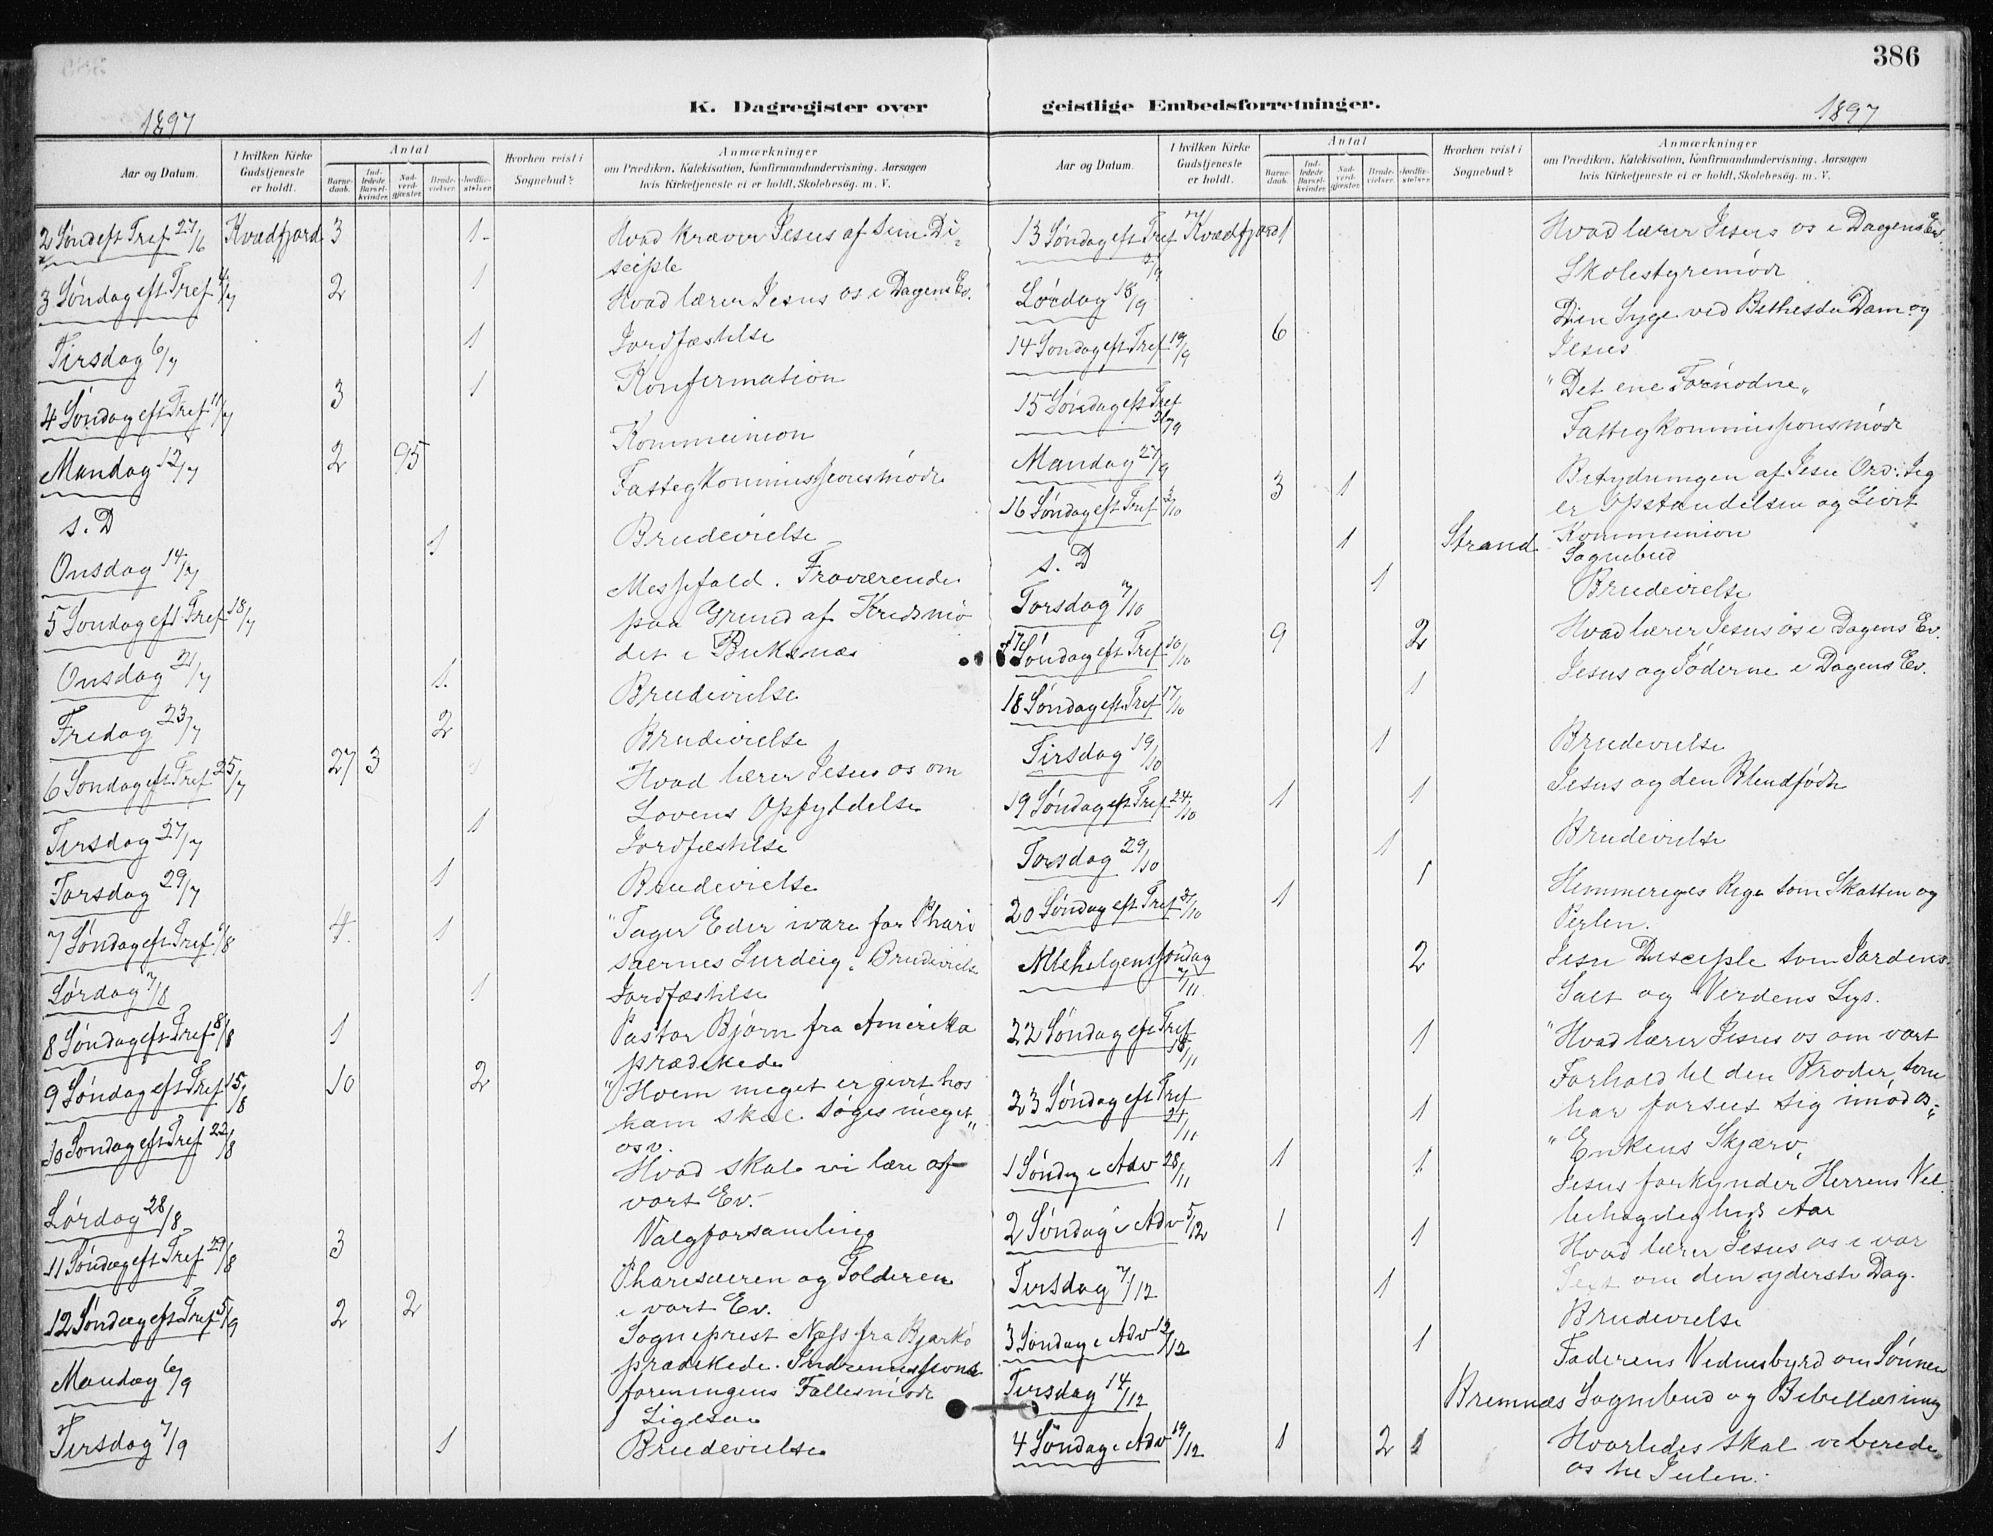 386
K. Dagregister over geistlige Embedsforretninger.
1897
1897
Aar og Datum.
I hvilken Kirke Gudstjeneste er holdt.
Antal
Barnedaab.
Indledede Barselkvinder.
Nadverdgjæster.
Brudevielser.
Jordfæstelser.
Hvorhen reist i Sognebud?
Anmærkninger
om Prædiken, Katekisation, Konfirmandundervisning, Aarsagen
hvis Kirketjeneste ei er holdt, Skolebesøg. m. V.
2 Sønd eft Tref 27/6 Kvædfjord 3 1 Hvad kræver Jesus af sine Di-
sciple
3 Søndag eft Tref 4/7 2 1 Hvad lærer Jesus os i Dagens Ev.
Tirsdag 6/7 1 Jordfæstelse
4 Søndag eft Tref 11/7 3 1 Konfirmation
Mandag 12/7 2 95 Kommunion
s. D Fattigkommissionsmøde
Onsdag 14/7 1 Brudevielse
5 Søndag eft Tref 18/7 Messefald. Fraværende
paa Grund af Kredsmø
det i Buksnæs
Onsdag 21/7 1 Brudevielse
Fredag 23/7 2 Brudevielse
6 Søndag eft Tref 25/7 27 3 1 Hvad lærer Jesus os om
Lovens Opfyldelse
Tirsdag 27/7 1 Jordfæstelse
Torsdag 29/7 1 Brudevielse
7 Søndag eft Tref 1/8 4 1 "Tager Eder ivare for Phari
sæernes Surdeig". Brudevielse
Lørdag 7/8 1 Jordfæstelse
8 Søndag eft Tref 8/8 1 Pastor Bjørn fra Amerika
prædikede
9 Søndag eft Tref 15/8 10 2 "Hvem meget er givet hos
ham skal søges meget"
osv.
10 Søndag eft Tref 22/8 Hvad skal vi lære af
vort Ev.
Lørdag 28/8 Valgforsamling
11 Søndag eft Tref 29/8 3 Pharisæeren og Tolderen
i vort Ev.
12 Søndag eft Tref 5/9 2 2 Sogneprest Næss fra Bjarkø
prædikede. Indremissions
Mandag 6/9 foreningens Fællesmøde
Ligesaa
Tirsdag 7/9 1 Brudevielse
Aar og Datum.
I hvilken Kirke Gudstjeneste er holdt.
Antal
Barnedaab.
Indledede Barselkvinder.
Nadverdgjæster.
Brudevielser.
Jordfæstelser.
Hvorhen reist i Sognebud?
Anmærkninger
om Prædiken, Katekisation, Konfirmandundervisning, Aarsagen
hvis Kirketjeneste ei er holdt, Skolebesøg. m. V.
13 Søndag eft Tref 12/9 Kvædfjord 1 Hvad lærer Jesus os i Dagens Ev.
Lørdag 18/9 Skolestyremøde
14 Søndag eft Tref 19/9 6 Den Syge ved Bethesda Dam og
Jesus
15 Søndag eft Tref 26/9 "Det ene Fornødne"
Mandag 27/9 Fattigkommissionsmøde
16 Søndag eft Tref 3/10 3 1 Betydningen af Jesu Ord: Jeg
er Opstandelsen og Livet
Kommunion
s. D 1 Strand Sognebud
Torsdag 7/10 1 Brudevielse
17 Søndag eft Tref 10/10 9 2 Hvad lærer Jesus os i Dagens Ev.
18 Søndag eft Tref 17/10 1 Jesus og Jøderne i Dagens Ev.
Tirsdag 19/10 1 Brudevielse
19 Søndag eft Tref 24/10 1 1 Jesus og den Blindfødte
Torsdag 29/10 1 Brudevielse
20 Søndag eft Tref 31/10 1 1 Himmeriges Rige som Skatten og
Perlen.
Allehelgenssøndag 7/11 2 Jesu Disciple som Jordens
Salt og Verdens Lys.
22 Søndag eft Tref 15/11 1 "Hvad lærer Jesus os om vort
Forhold til den Broder, som
23 Søndag eft Tref 21/11 1 har forseet sig imod os"
"Enkens Skjærv"
1 Søndag i Adv 28/11 1 1 Jesus forkynder Herrens Vel-
behageligheds Aar
2 Søndag i Adv 5/12 1 1 Hvad lærer Jesus os i vor
Text om den yderste Dag.
Tirsdag 7/12 1 Brudevielse
3 Søndag i Adv 12/12 1 Faderens Vidnesbyrd om Sønnen
Tirsdag 14/12 Bremnæs Sognebud og Bibellæsning
4 Søndag i Adv 19/12 1 2 1 Hvorledes skal vi berede
os til Julen.